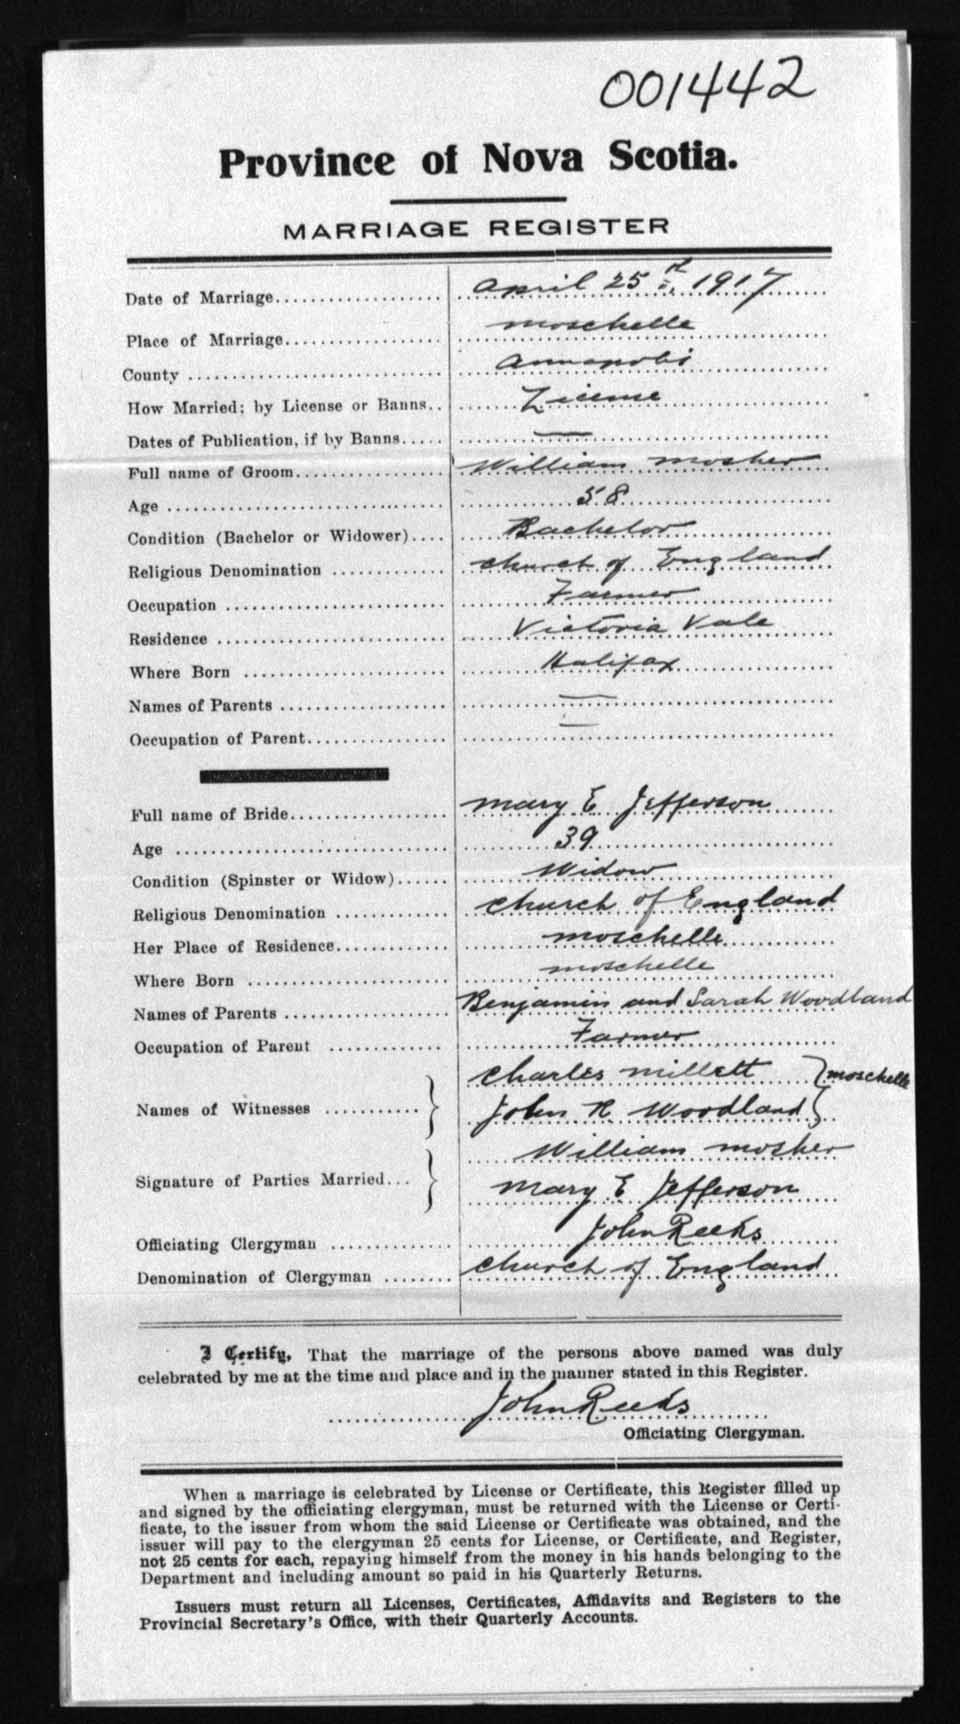 001442
Province of Nova Scotia.
MARRIAGE REGISTER
Date of Marriage.................... April 25th, 1917
Place of Marriage.................. Moschelle
County ............................. Annapolis
How Married; by License or Banns.. License
Dates of Publication, if by Banns..... —
Full name of Groom................. William Mosher
Age ............................... 58
Condition (Bachelor or Widower).... Bachelor
Religious Denomination ............ Church of England
Occupation ........................ Farmer
Residence ......................... Victoria Vale
Where Born ........................ Halifax
Names of Parents .................. —
Occupation of Parent............... —
Full name of Bride................. Mary E Jefferson
Age ............................... 39
Condition (Spinster or Widow)...... Widow
Religious Denomination ............ Church of England
Her Place of Residence............. Moschelle
Where Born ........................ Moschelle
Names of Parents .................. Benjamin and Sarah Woodland
Occupation of Parent .............. Farmer
Names of Witnesses ........... } Charles Millett } Moschelle
John R Woodland
Signature of Parties Married... } William Mosher
Mary E Jefferson
Officiating Clergyman ............. John Reeks
Denomination of Clergyman ........ Church of England
I Certify, That the marriage of the persons above named was duly
celebrated by me at the time and place and in the manner stated in this Register.
John Reeks
Officiating Clergyman.
When a marriage is celebrated by License or Certificate, this Register filled up
and signed by the officiating clergyman, must be returned with the License or Certi-
ficate, to the issuer from whom the said License or Certificate was obtained, and the
issuer will pay to the clergyman 25 cents for License, or Certificate, and Register,
not 25 cents for each, repaying himself from the money in his hands belonging to the
Department and including amount so paid in his Quarterly Returns.
Issuers must return all Licenses, Certificates, Affidavits and Registers to the
Provincial Secretary's Office, with their Quarterly Accounts.